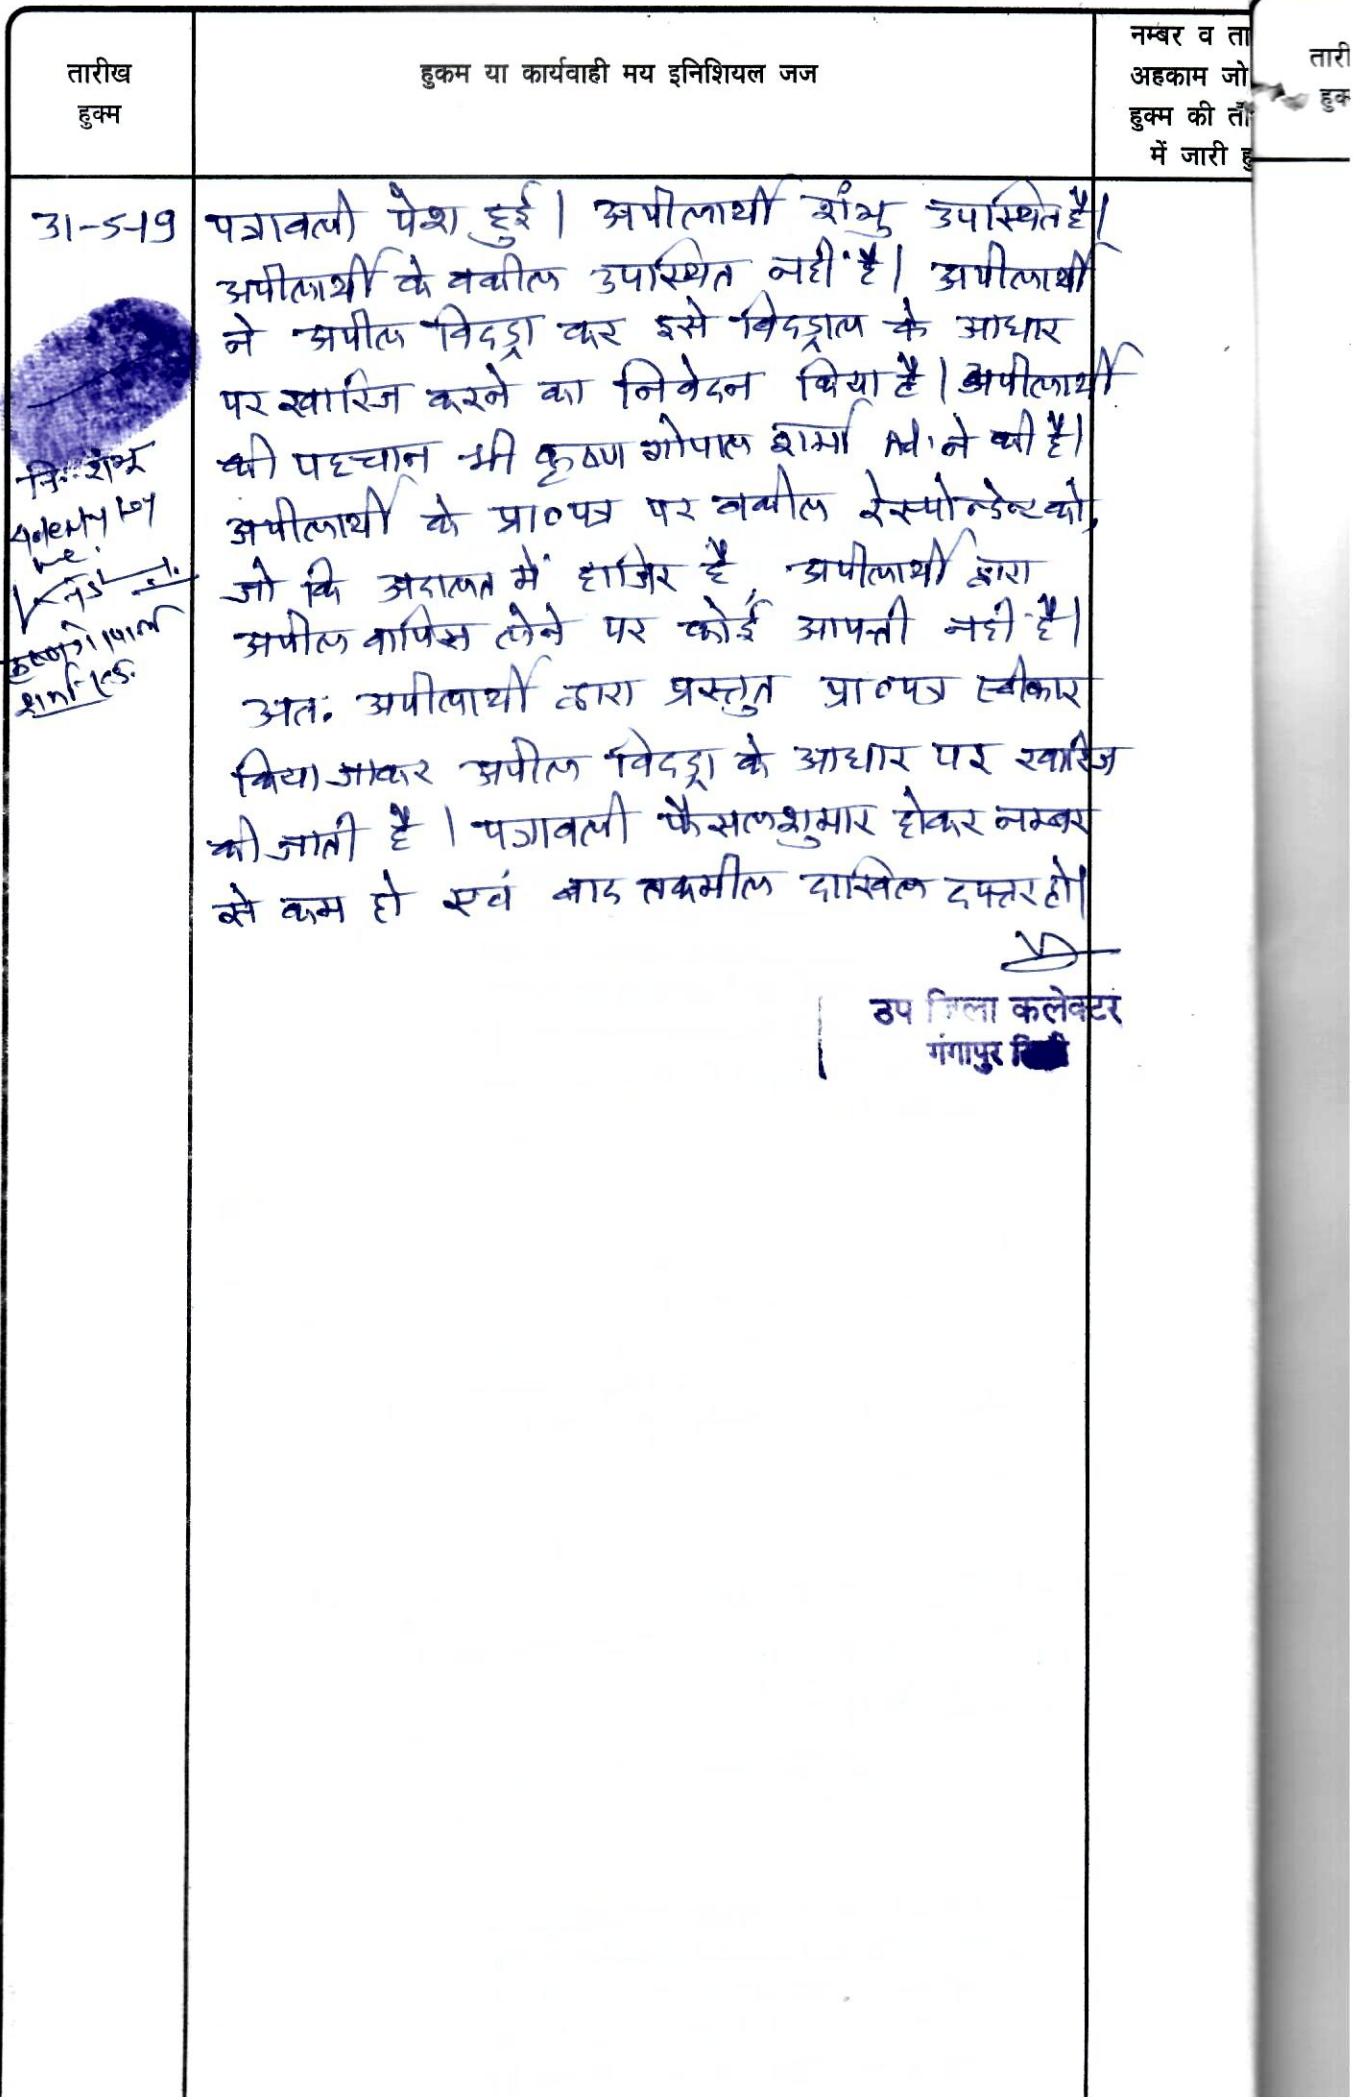 तारीख
हुक्म
हुकम या कार्यवाही मय इनिशियल जज
नम्बर व ता
अहकाम जो
हुक्म की
में जारी
तारी
हुक
31-5-19
पत्रावली पेश हुई। अपीलार्थी शंभु उपस्थित है।
अपीलार्थी के वकील उपस्थित नहीं है। अपीलार्थी
ने अपील विदड्रा कर इसे विदड्राल के आधार
पर खारिज करने का निवेदन किया है। अपीलार्थी
की पहचान श्री कृष्ण गोपाल शर्मा Ad. ने की है।
अपीलार्थी के प्रा०पत्र पर वकील रेस्पोन्डेन्ट को,
जो कि अदालत में हाजिर है, अपीलार्थी द्वारा
अपील वापिस लेने पर कोई आपत्ती नहीं है।
अतः अपीलार्थी द्वारा प्रस्तुत प्रा०पत्र स्वीकार
किया जाकर अपील विदड्रा के आधार पर खारिज
की जाती है। पत्रावली फैसलशुमार होकर नम्बर
से कम हो एवं बाद तकमील दाखिल दफ्तर हो।
नि. शंभू
by
me
कृष्णगोपाल
शर्मा
उप जिला कलेक्टर
गंगापुर